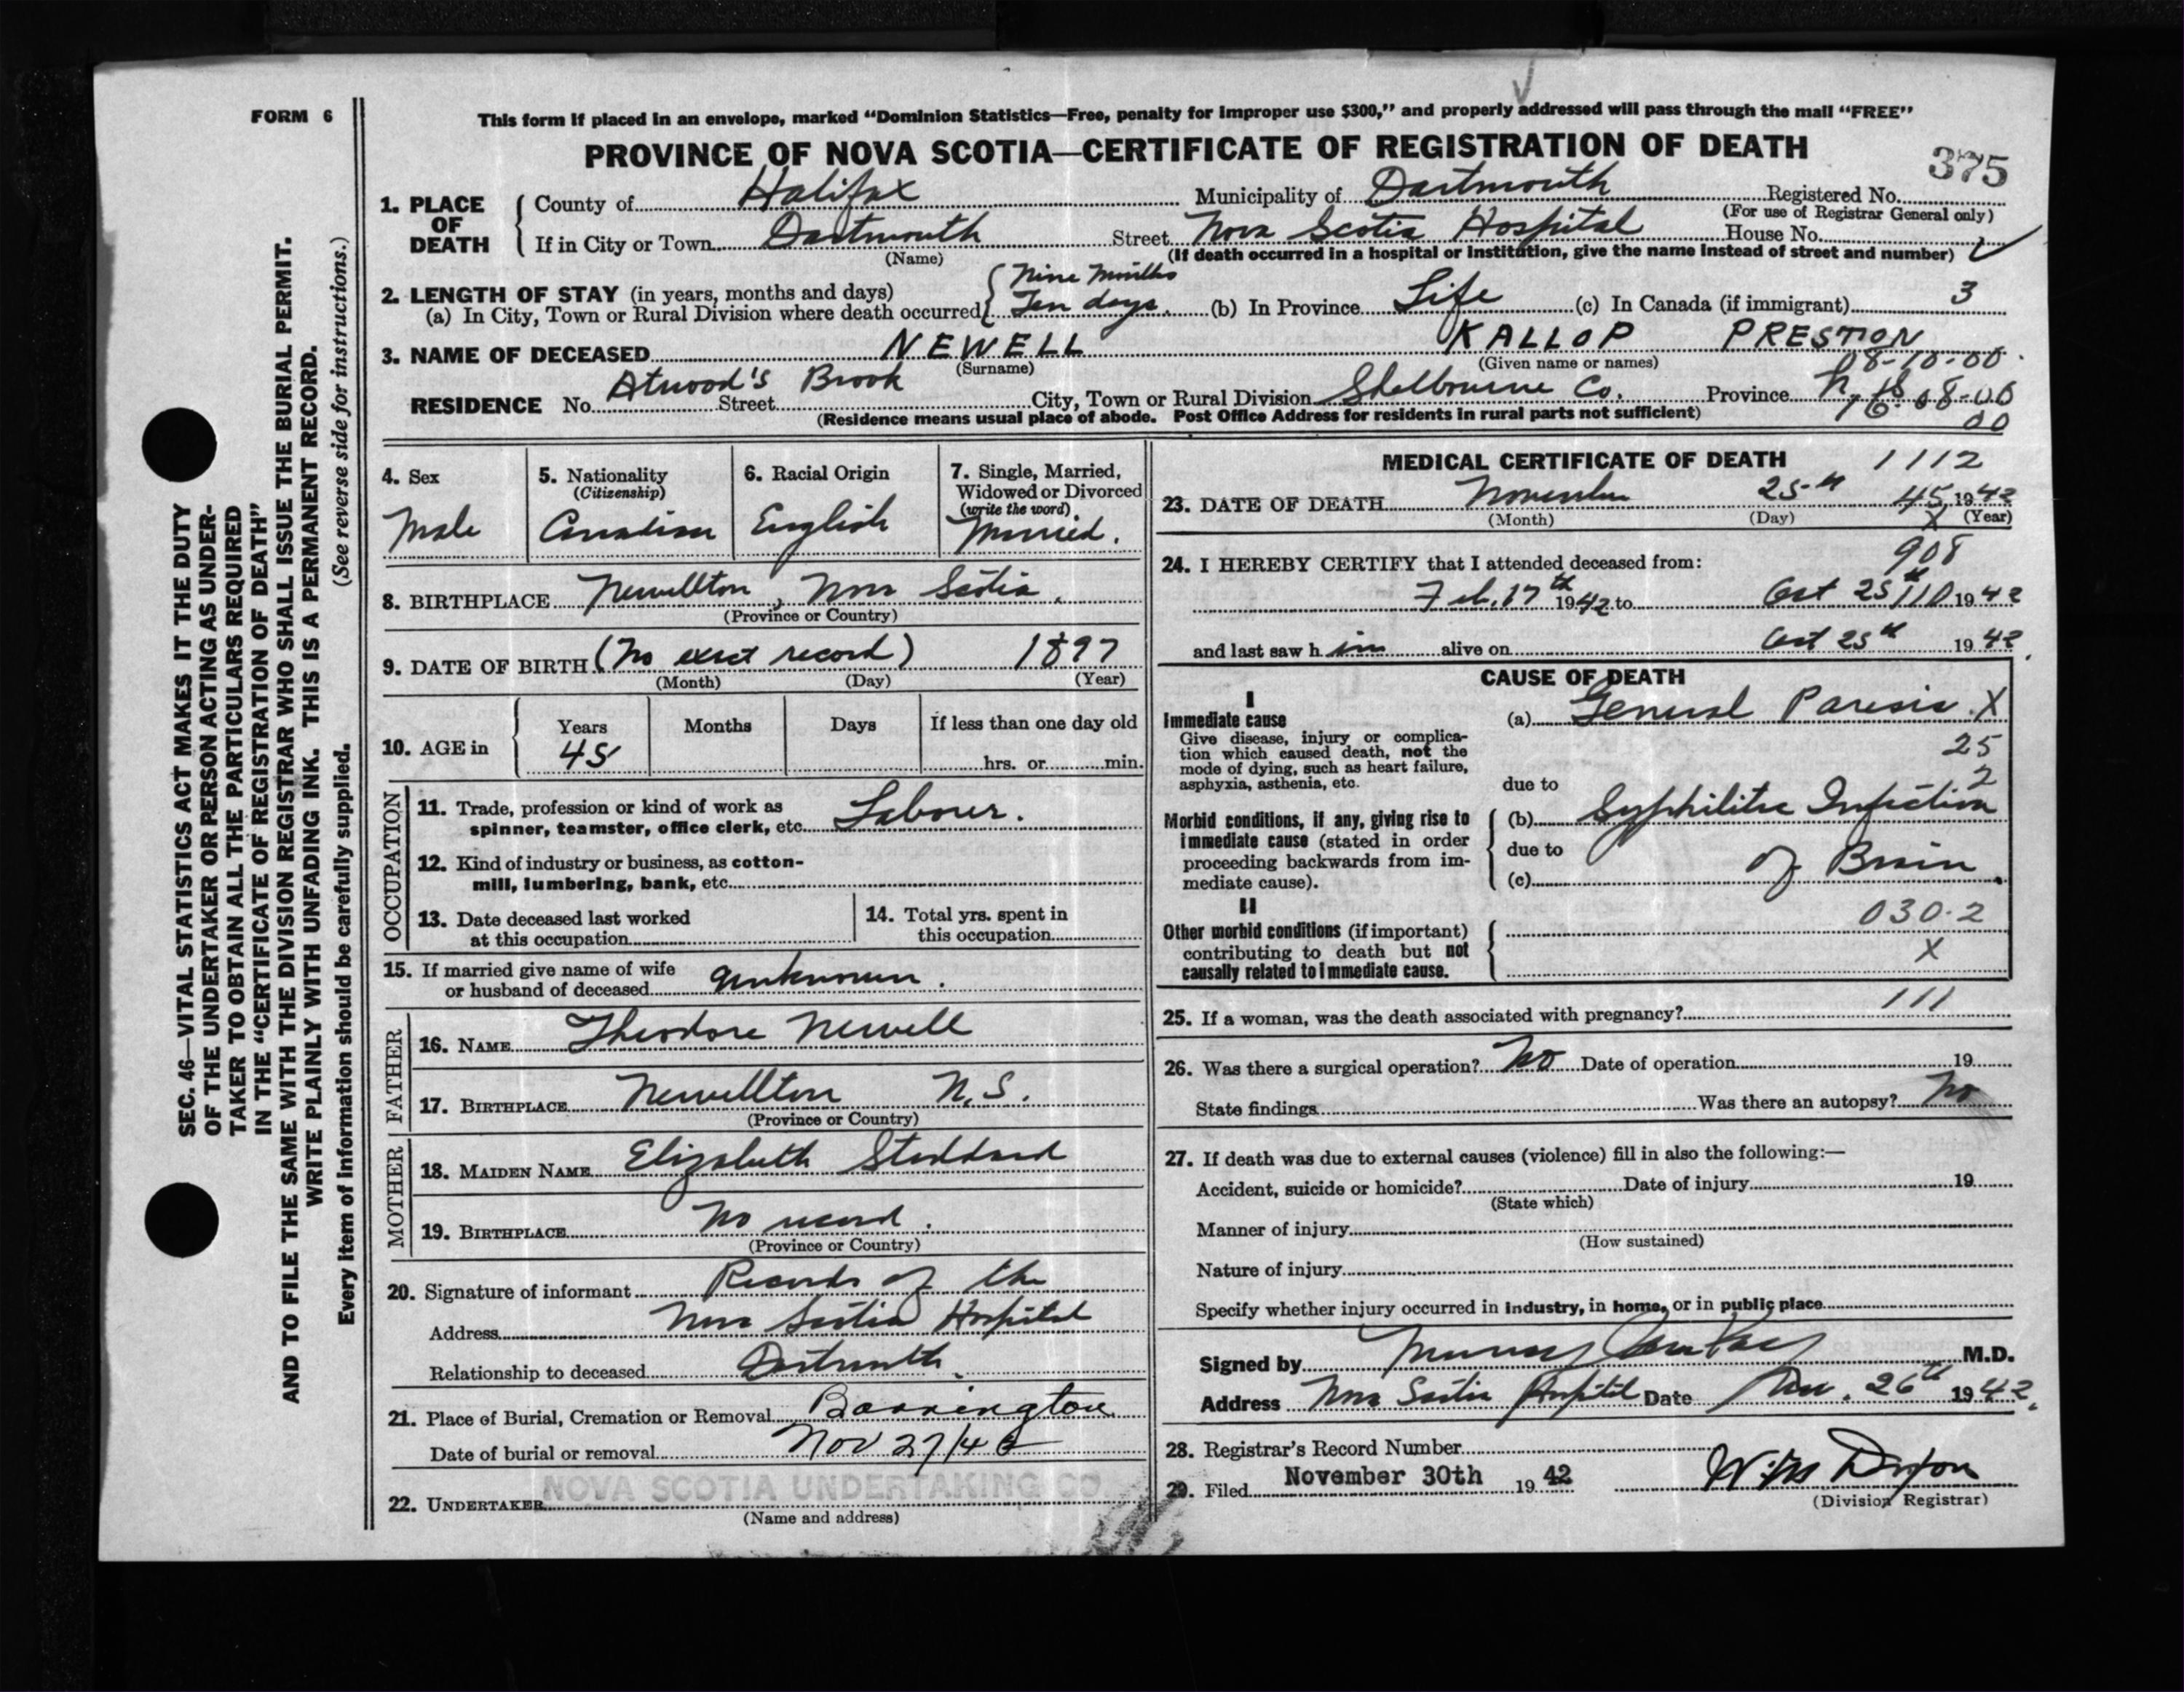 FORM 6
This form if placed in an envelope, marked “Dominion Statistics—Free, penalty for improper use $300,” and properly addressed will pass through the mail “FREE”
PROVINCE OF NOVA SCOTIA—CERTIFICATE OF REGISTRATION OF DEATH
375
1. PLACE OF DEATH
County of Halifax Municipality of Dartmouth Registered No.
(For use of Registrar General only)
If in City or Town Dartmouth Street Nova Scotia Hospital House No.
(Name) (If death occurred in a hospital or institution, give the name instead of street and number)
2. LENGTH OF STAY (in years, months and days) Nine Months
(a) In City, Town or Rural Division where death occurred Ten days. (b) In Province Life (c) In Canada (if immigrant) 3
3. NAME OF DECEASED NEWELL KALLOP PRESTON
(Surname) (Given name or names) 08-10-00
RESIDENCE No. Atwood's Brook Street City, Town or Rural Division Shelbourne Co. Province N.S.
08-00
(Residence means usual place of abode. Post Office Address for residents in rural parts not sufficient) 00
4. Sex
Male
5. Nationality
(Citizenship)
Canadian
6. Racial Origin
English
7. Single, Married,
Widowed or Divorced
(write the word)
Married.
8. BIRTHPLACE Newellton, Nova Scotia.
(Province or Country)
9. DATE OF BIRTH (No exact record) 1897
(Month) (Day) (Year)
10. AGE in
Years Months Days If less than one day old
45 hrs. or min.
OCCUPATION
11. Trade, profession or kind of work as
spinner, teamster, office clerk, etc. Labourer.
12. Kind of industry or business, as cotton-
mill, lumbering, bank, etc.
13. Date deceased last worked
at this occupation
14. Total yrs. spent in
this occupation
15. If married give name of wife
or husband of deceased unknown.
FATHER
16. NAME Theodore Newell
17. BIRTHPLACE Newellton N.S.
(Province or Country)
MOTHER
18. MAIDEN NAME Elizabeth Stoddard
19. BIRTHPLACE No record.
(Province or Country)
20. Signature of informant Records of the
Address Nova Scotia Hospital
Relationship to deceased Dartmouth.
21. Place of Burial, Cremation or Removal Barrington
Date of burial or removal Nov 27/42
22. UNDERTAKER NOVA SCOTIA UNDERTAKING CO.
(Name and address)
MEDICAL CERTIFICATE OF DEATH 1112
23. DATE OF DEATH November 25th 45 1942
(Month) (Day) X (Year)
908
24. I HEREBY CERTIFY that I attended deceased from:
Feb. 17th 1942 to Oct 25th 110 1942
and last saw him alive on Oct 25th 1942.
CAUSE OF DEATH
I
Immediate cause (a) General Paresis. X
Give disease, injury or complica-
tion which caused death, not the 25
mode of dying, such as heart failure,
asphyxia, asthenia, etc. due to 2
Morbid conditions, if any, giving rise to (b) Syphilitic Infection
immediate cause (stated in order
proceeding backwards from im- due to
mediate cause). (c) of Brain.
II
030.2
Other morbid conditions (if important)
contributing to death but not X
causally related to immediate cause.
111
25. If a woman, was the death associated with pregnancy?
26. Was there a surgical operation? No Date of operation 19
State findings Was there an autopsy? No
27. If death was due to external causes (violence) fill in also the following:—
Accident, suicide or homicide? Date of injury 19
(State which)
Manner of injury
(How sustained)
Nature of injury
Specify whether injury occurred in industry, in home, or in public place
Signed by Murray M.D.
Address Nova Scotia Hospital Date Nov. 26th 1942.
28. Registrar's Record Number
29. Filed November 30th 1942
(Division Registrar)
SEC. 46—VITAL STATISTICS ACT MAKES IT THE DUTY
OF THE UNDERTAKER OR PERSON ACTING AS UNDER-
TAKER TO OBTAIN ALL THE PARTICULARS REQUIRED
IN THE “CERTIFICATE OF REGISTRATION OF DEATH”
AND TO FILE THE SAME WITH THE DIVISION REGISTRAR WHO SHALL ISSUE THE BURIAL PERMIT.
WRITE PLAINLY WITH UNFADING INK. THIS IS A PERMANENT RECORD.
(See reverse side for instructions.)
Every item of information should be carefully supplied.